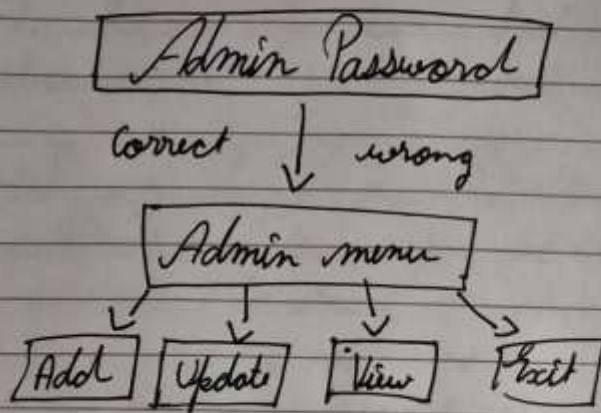 Admin Password
Correct wrong
Admin menu
Add Update View Exit